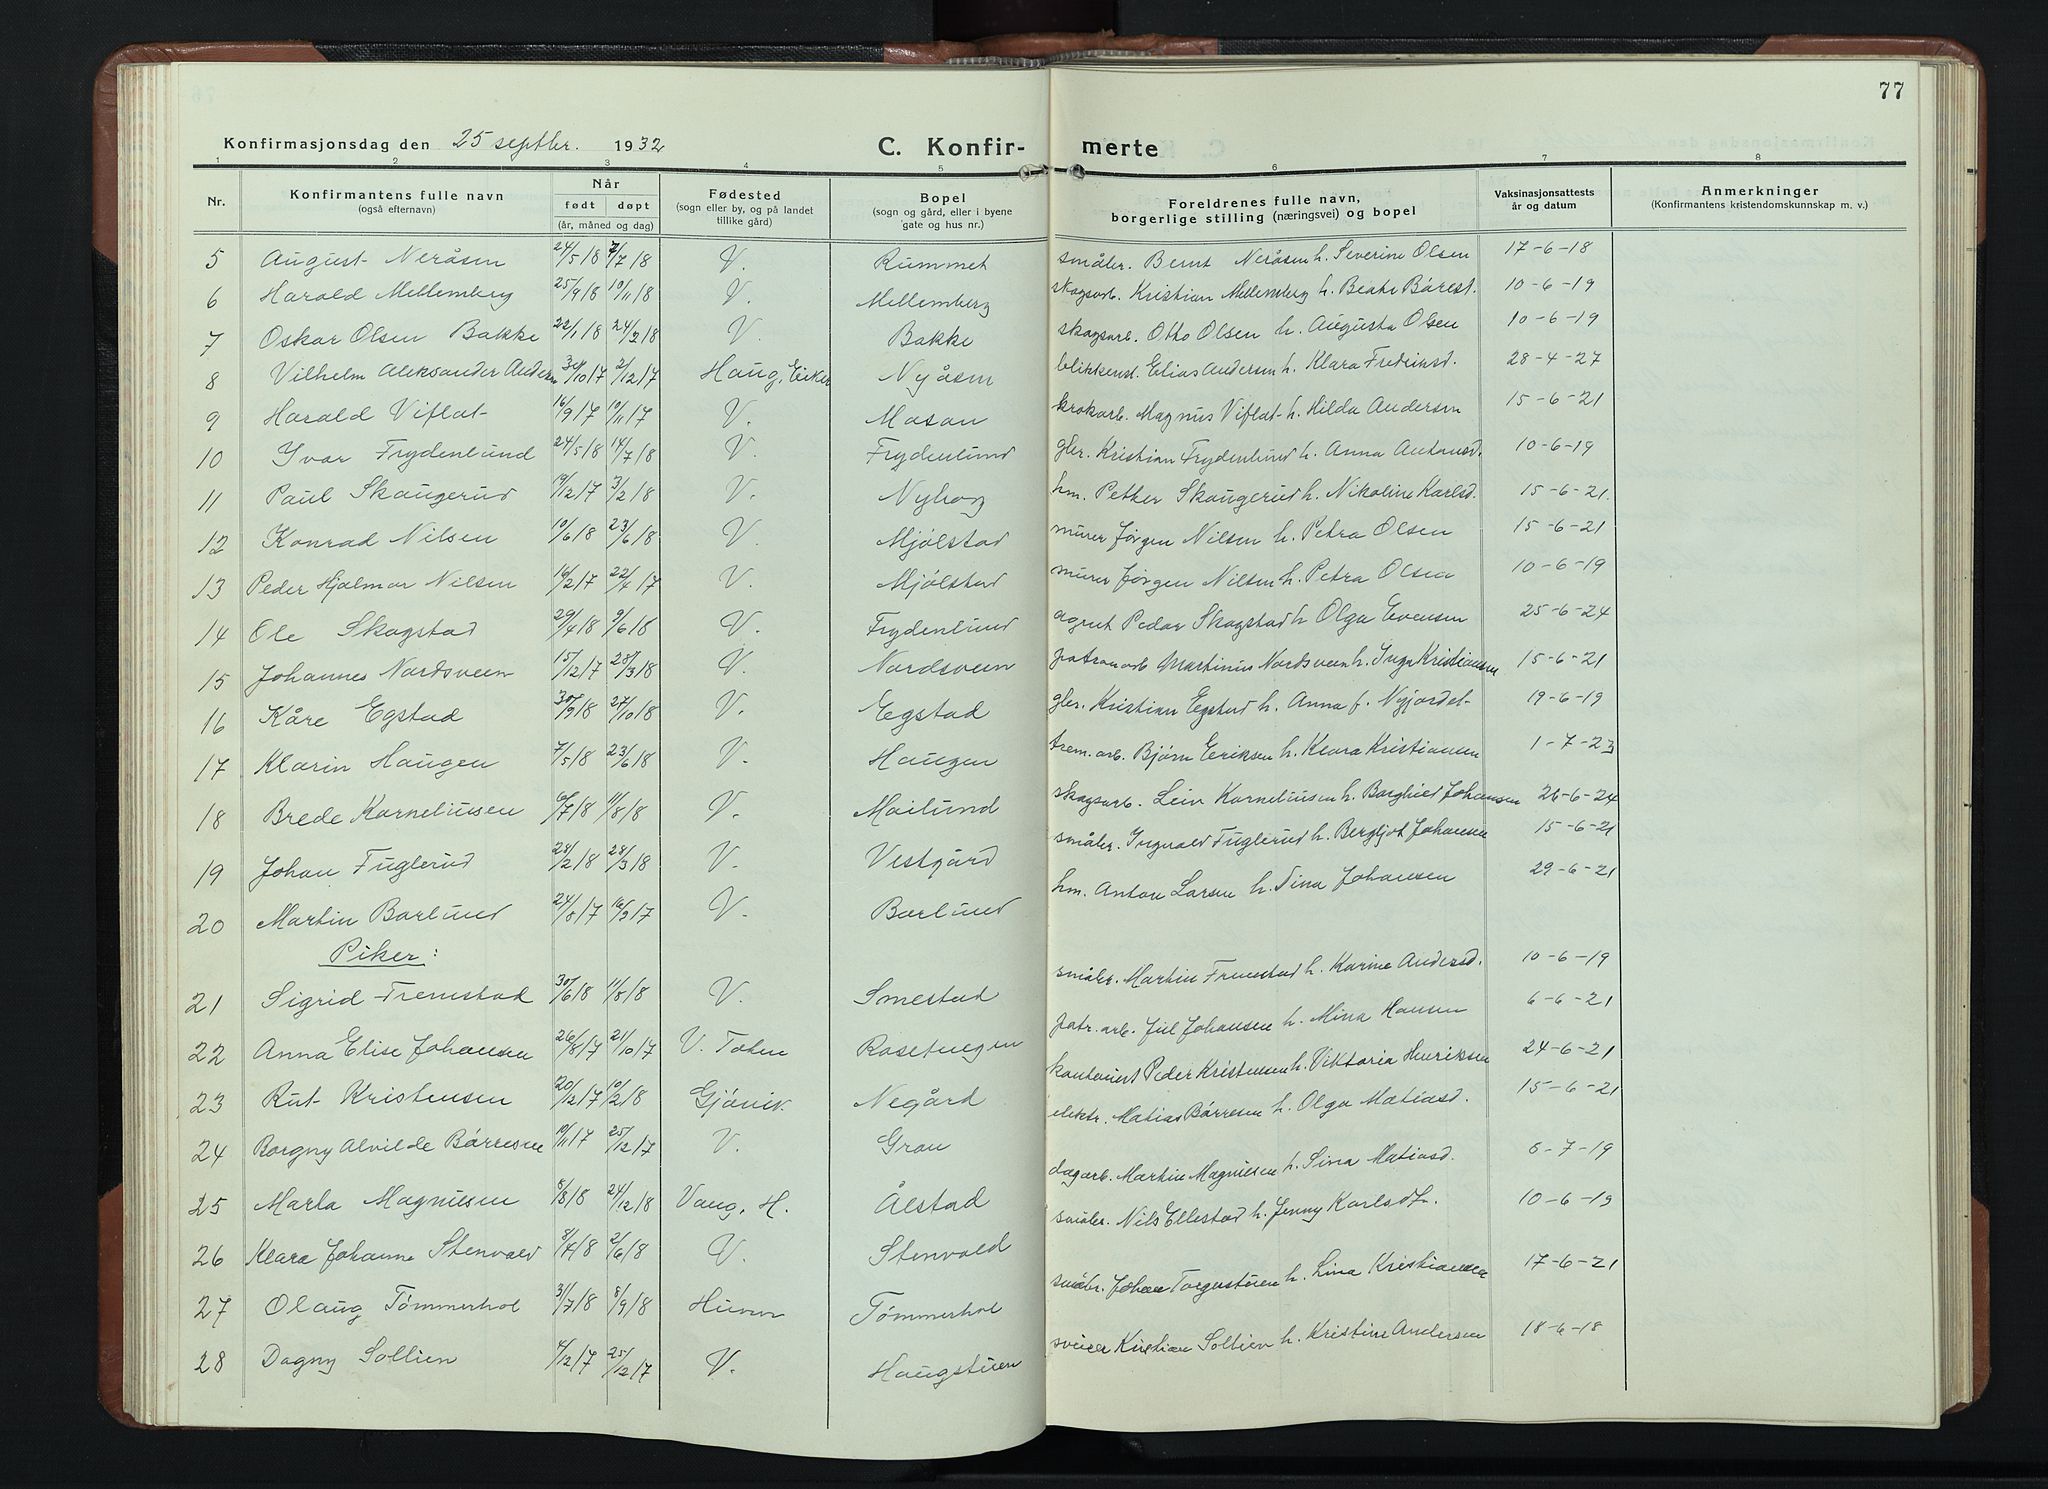 77
Konfirmasjonsdag den 25 septbr. 1932 C. Konfir- merte
1 2 3 4 5 6 7 8
Nr. Konfirmantens fulle navn (også efternavn) Når født døpt (år, måned og dag) Fødested (sogn eller by, og på landet tillike gård) Bopel (sogn og gård, eller i byene gate og hus nr.) Foreldrenes fulle navn, borgerlige stilling (næringsvei) og bopel Vaksinasjonsattests år og datum Anmerkninger (Konfirmantens kristendomskunnskap m. v.)
5 August Neråsen 24/5 18 7/7 18 V. Rummet småbr. Bernt Neråsen h. Severine Olsen 17-6-18
6 Harald Mellemberg 25/9 18 10/11 18 V. Mellemberg skogsarb. Kristian Mellemberg h. Beate Børest. 10-6-19
7 Oskar Olsen Bakke 22/1 18 24/2 18 V. Bakke skogsarb. Otto Olsen h. Augusta Olsen 10-6-19
8 Vilhelm Aleksander Andersen 30/10 17 2/12 17 Haug, Eiker Nyåsen blikkensl. Elias Andersen h. Klara Fredriksd. 28-4-27
9 Harald Viflat 16/9 17 10/11 17 V. Moson krokarb. Magnus Viflat h. Hilda Andersen 15-6-21
10 Yvar Frydenlund 24/5 18 14/7 18 V. Frydenlund gbr. Kristian Frydenlund h. Anna Antonsd. 10-6-19
11 Paul Skaugerud 19/12 17 3/2 18 V. Nyhag hm. Petter Skaugerud h. Nikoline Karlsd. 15-6-21
12 Konrad Nilsen 10/6 18 23/6 18 V. Mjølstad murer Jørgen Nilsen h. Petra Olsen 15-6-21
13 Peder Hjalmar Nilsen 16/2 17 22/4 17 V. Mjølstad murer Jørgen Nilsen h. Petra Olsen 10-6-19
14 Ole Skogstad 29/4 18 9/6 18 V. Frydenlund agent Peder Skogstad h. Olga Evensen 25-6-24
15 Johannes Nordsveen 15/12 17 28/3 18 V. Nordsveen patronarb Martinius Nordsveen h. Inga Kristiansen 15-6-21
16 Kåre Egstad 30/9 18 27/10 18 V. Egstad gbr. Kristian Egstad h. Anna f. Nyjordet 19-6-19
17 Klarin Haugen 7/5 18 23/6 18 V. Haugen trem. arb. Bjørn Eriksen h. Klara Kristiansen 1-7-23
18 Brede Korneliussen 6/7 18 11/8 18 V. Moilund skogsarb. Leiv Korneliussen h. Borghild Johansen 26-6-24
19 Johan Fuglerud 28/2 18 28/3 18 V. Vestgård småbr. Ingvald Fuglerud h. Bergljot Johansen 15-6-21
20 Martin Borlund 24/8 17 16/9 17 V. Borlund hm. Anton Larsen h. Tina Johansen 29-6-21
Piker:
21 Sigrid Fremstad 30/6 18 11/8 18 V. Smestad småbr. Martin Fremstad h. Karine Andersd. 10-6-19
22 Anna Elise Johansen 26/8 17 21/10 17 V. Toten Rosetengen patr. arb. Juel Johansen h. Mina Hansen 6-6-21
23 Rut Kristensen 20/12 17 10/2 18 Gjøvik Negård kontorist Peder Kristensen h. Viktoria Henriksen 24-6-21
24 Borgny Alvilde Børresen 19/11 17 25/12 17 V. Gran elektr. Matias Børresen h. Olga Matiasd. 15-6-21
25 Marta Magnusen 8/8 18 24/12 18 Vang, H. Ålstad dagarb. Martin Magnusen h. Sina Matiasd. 6-7-19
26 Klara Johanne Stenvold 8/4 18 2/6 18 V. Stenvold småbr. Nils Ellestad h. Jenny Karlsdtr. 10-6-19
27 Olaug Tømmerhol 31/7 18 8/9 18 Hunn Tømmerhol småbr. Johan Torgerstuen h. Lina Kristiansen 17-6-21
28 Dagny Sollien 4/12 17 25/12 17 V. Haugstuen sveiser Kristian Sollien h. Kristine Andersen 18-6-18